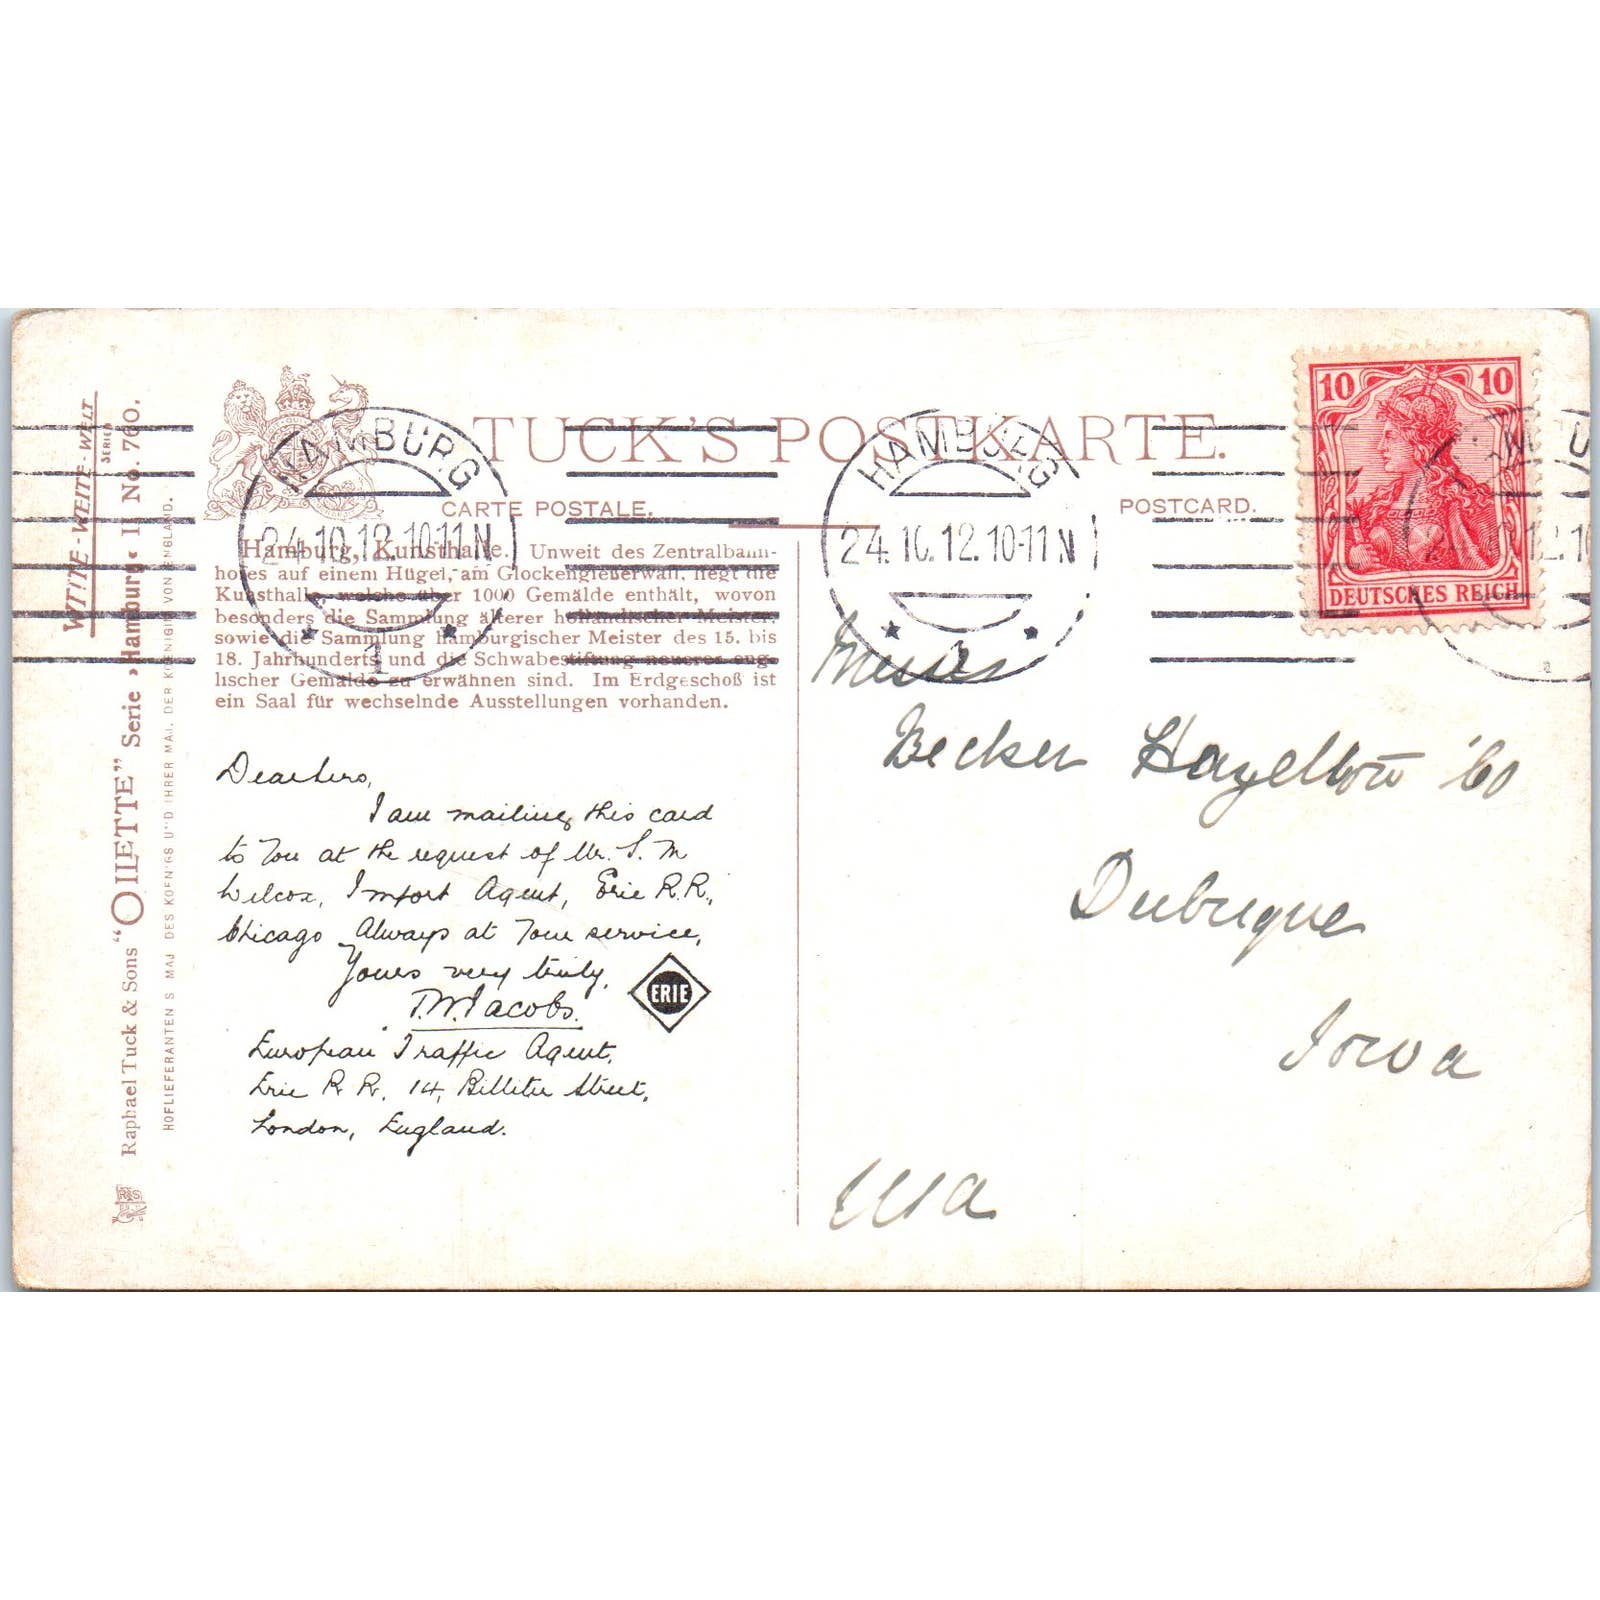 WITTE-WEITE-WELT
SERIEN
Raphael Tuck & Sons "OILETTE" Serie »Hamburg« II No. 760.
HOFLIEFERANTEN S MAJ DES KOENIGS UND IHRER MAJ. DER KOENIGIN VON ENGLAND.
TUCK'S POSTKARTE.
CARTE POSTALE.
POSTCARD.
Hamburg, Kunsthalle. Unweit des Zentralbahn-
hofes auf einem Hügel, am Glockengießerwall, liegt die
Kunsthalle, welche über 1000 Gemälde enthält, wovon
besonders die Sammlung älterer holländischer Meister,
sowie die Sammlung hamburgischer Meister des 15. bis
18. Jahrhunderts und die Schwabestiftung neuerer eng-
lischer Gemälde zu erwähnen sind. Im Erdgeschoß ist
ein Saal für wechselnde Ausstellungen vorhanden.
HAMBURG
24.10.12.10-11N
1
HAMBURG
24.10.12.10-11N
1
10 10
DEUTSCHES REICH
Dear Sirs,
I am mailing this card
to You at the request of Mr. S. M
Wilcox, Import Agent, Erie R.R.,
Chicago Always at Your service,
Yours very truly,
T.W. Jacobs.
ERIE
European Traffic Agent,
Erie R R. 14, Billiter Street,
London, England.
Messrs
Becker Hazelton Co
Dubuque
Iowa
USA